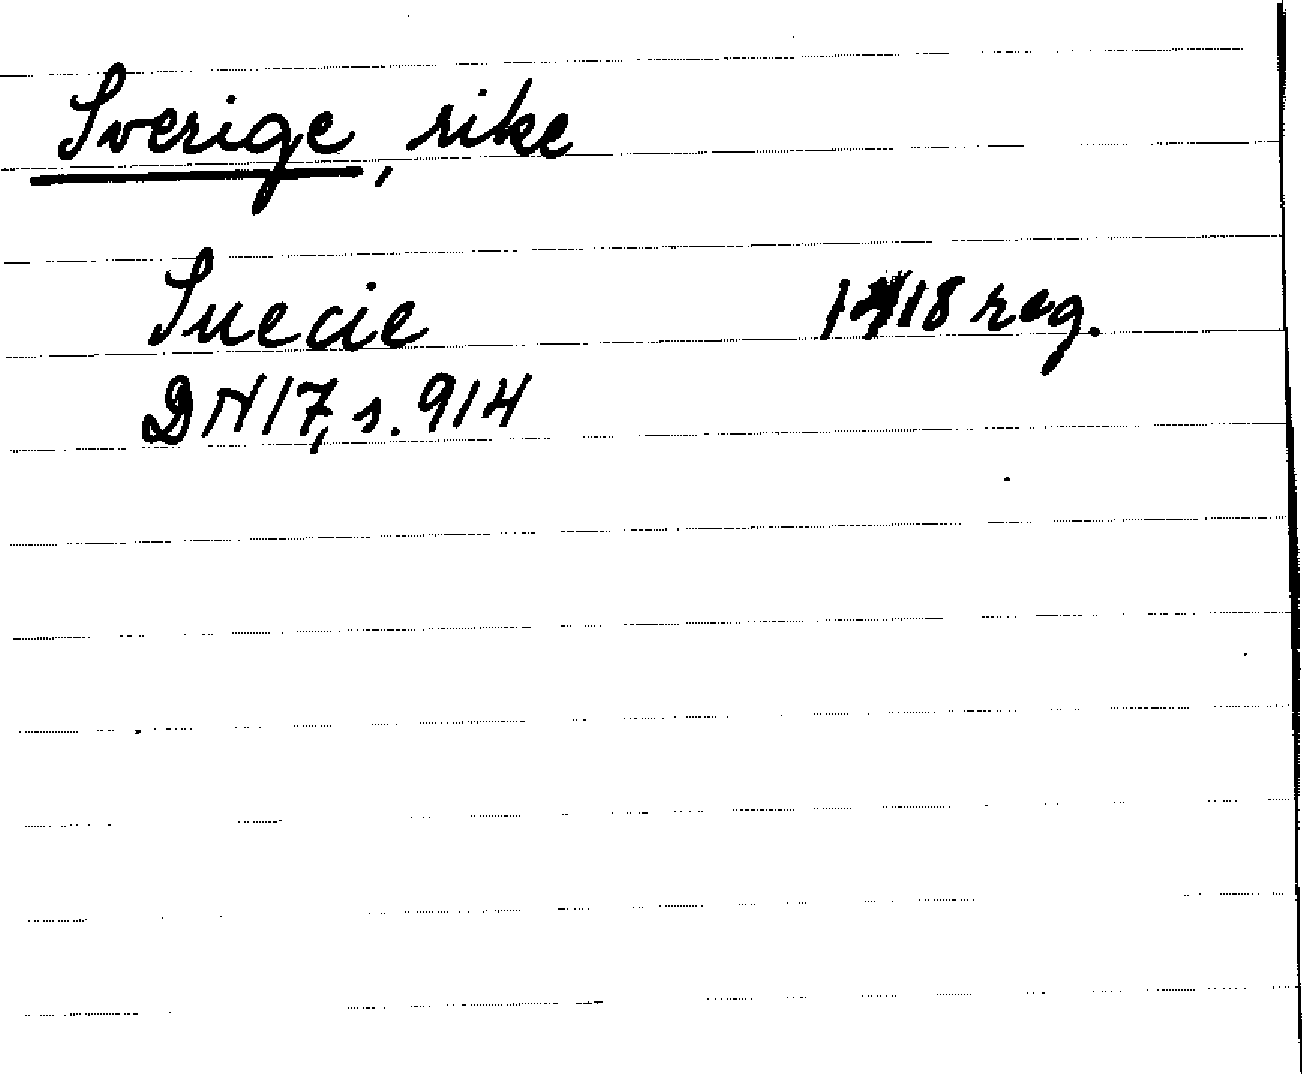 Sverige, rike
Suecie 1418 reg.
DN 17, s. 914